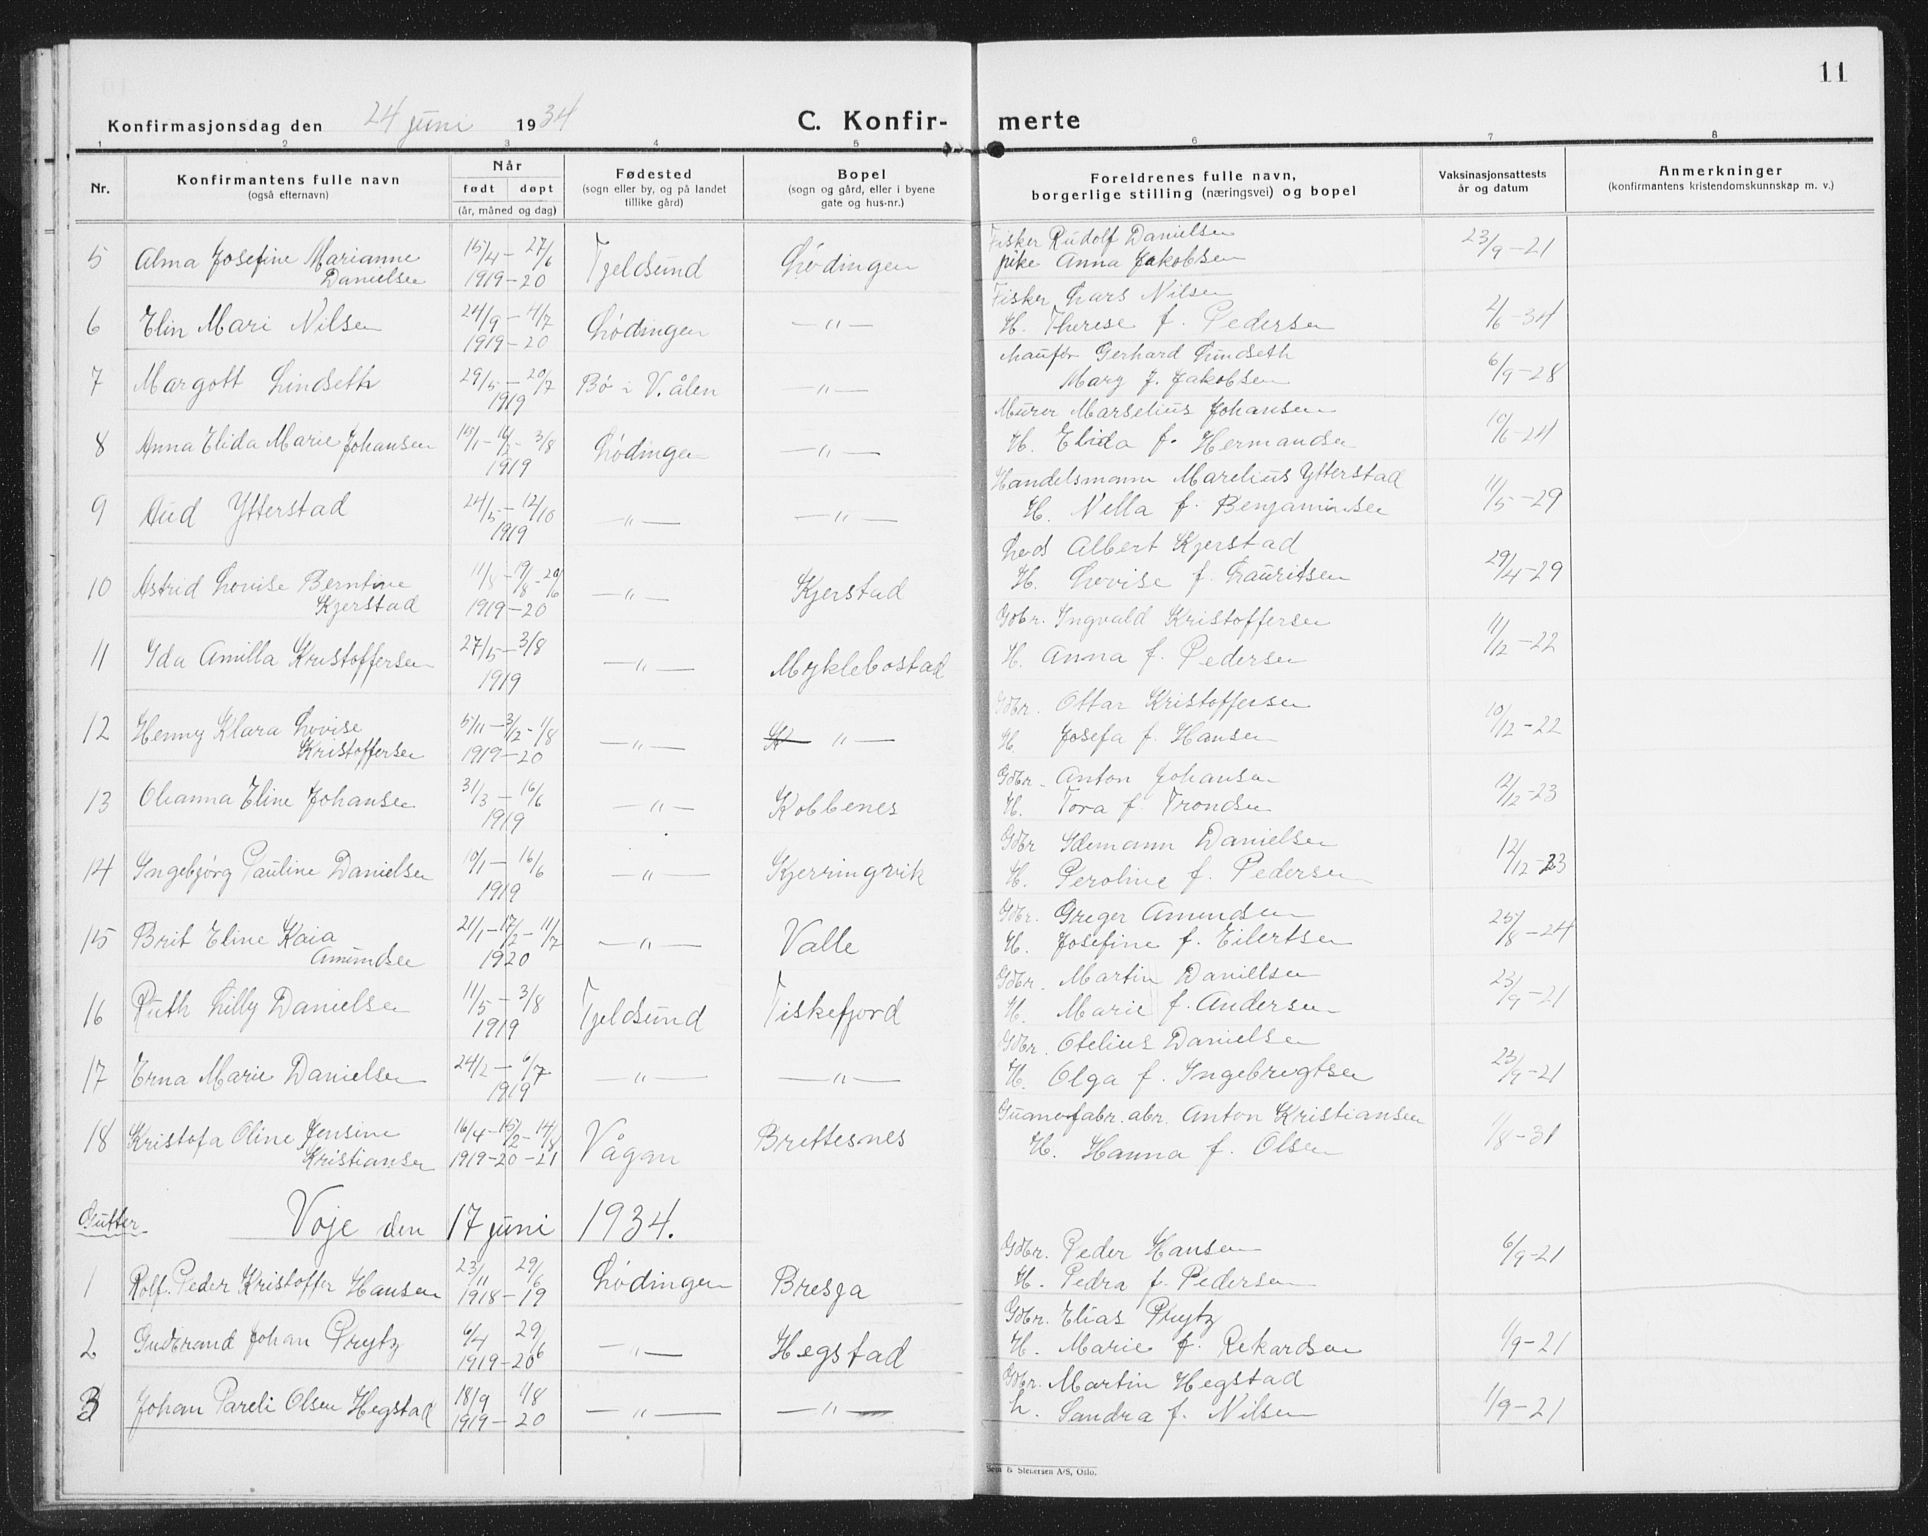 11
Konfirmasjonsdag den 24 juni 1934 C. Konfir- merte
1 2 3 4 5 6 7 8
Nr. Konfirmantens fulle navn (også efternavn) Når født døpt (år, måned og dag) Fødested (sogn eller by, og på landet tillike gård) Bopel (sogn og gård, eller i byene gate og hus-nr.) Foreldrenes fulle navn, borgerlige stilling (næringsvei) og bopel Vaksinasjonsattests år og datum Anmerkninger (konfirmantens kristendomskunnskap m. v.)
5 Alma Josefine Marianne Danielsen 15/4 – 27/6 1919 – 20 Tjeldsund Lødingen Fisker Rudolf Danielsen
pike Anna Jakobsen 23/9 – 21
6 Elin Mari Nilsen 24/9 – 4/7 1919 – 20 Lødingen — " — Fisker Lars Nilsen
H. Therese f. Pedersen 2/6 – 34
7 Margott Lindseth 29/5 – 20/7 1919 Bø i V.ålen — " — Maufør Gerhard Lindseth
Mary f. Jakobsen 6/9 – 28
8 Anna Elida Marie Johansen 15/1 – 16/2 – 3/8 1919 Lødingen — " — Murer Marselius Johansen
H. Elida f. Hermandsen 10/6 – 24
9 Aud Ytterstad 24/5 – 12/10 1919 — " — — " — Handelsmann Marelius Ytterstad
H. Nella f. Benjaminsen 11/5 – 29
10 Astrid Lovise Berntine Kjerstad 11/8 – 19/8 – 20/6 1919 – 20 — " — Kjerstad Lods Albert Kjerstad
H. Lovise f. Lauritsen 29/4 – 29
11 Ida Amilla Kristoffersen 27/5 – 3/8 1919 — " — Myklebostad Gdbr. Ingvald Kristoffersen
H. Anna f. Pedersen 11/12 – 22
12 Henny Klara Lovise Kristoffersen 5/11 – 3/2 – 1/8 1919 – 20 — " — — " — Gdbr. Ottar Kristoffersen
H Josefa f. Hansen 10/12 – 22
13 Olianna Eline Johansen 31/3 – 16/6 1919 — " — Kobbenes Gdbr. Anton Johansen
H. Tora f. Trondsen 12/12 – 23
14 Ingebjørg Pauline Danielsen 10/1 – 16/6 1919 — " — Kjerringvik Gdbr Idemann Danielsen
H. Peroline f. Pedersen 12/12 – 23
15 Brit Eline Kaia Amundsen 21/1 – 17/2 – 11/7 1920 — " — Valle Gdbr. Greger Amundsen
H. Josefine f. Eilertsen 25/8 – 24
16 Ruth Lilly Danielsen 11/5 – 3/8 1919 Tjeldsund Fiskefjord Gdbr. Martin Danielsen
H. Marie f. Andersen 23/9 – 21
17 Erna Marie Danielsen 24/2 – 6/7 1919 — " — — " — Gdbr. Otelius Danielsen
H. Olga f. Ingebregtsen 23/9 – 21
18 Kristofa Oline Jensine Kristiansen 16/4 – 15/2 – 14/8 1919 – 20 – 21 Vågan Brettesnes Guanofabr. abr. Anton Kristiansen
H. Hanna f. Olsen 1/8 – 31
Gutter Voje den 17 juni 1934.
1 Rolf Peder Kristoffer Hansen 23/11 29/6 1918 – 19 Lødingen Bresja Gdbr. Peder Hansen
H. Pedra f. Pedersen 6/9 – 21
2 Gudbrand Johan Prytz 6/4 29/6 1919 – 20 — " — Hegstad Gdbr. Elias Prytz
H. Marie f. Rekardsen 1/9 – 21
3 Johan Pareli Olsen Hegstad 18/9 1/8 1919 – 20 — " — — " — Gdbr. Martin Hegstad
h. Sandra f. Nilsen 1/9 – 21
Sem & Stenersen A/S, Oslo.